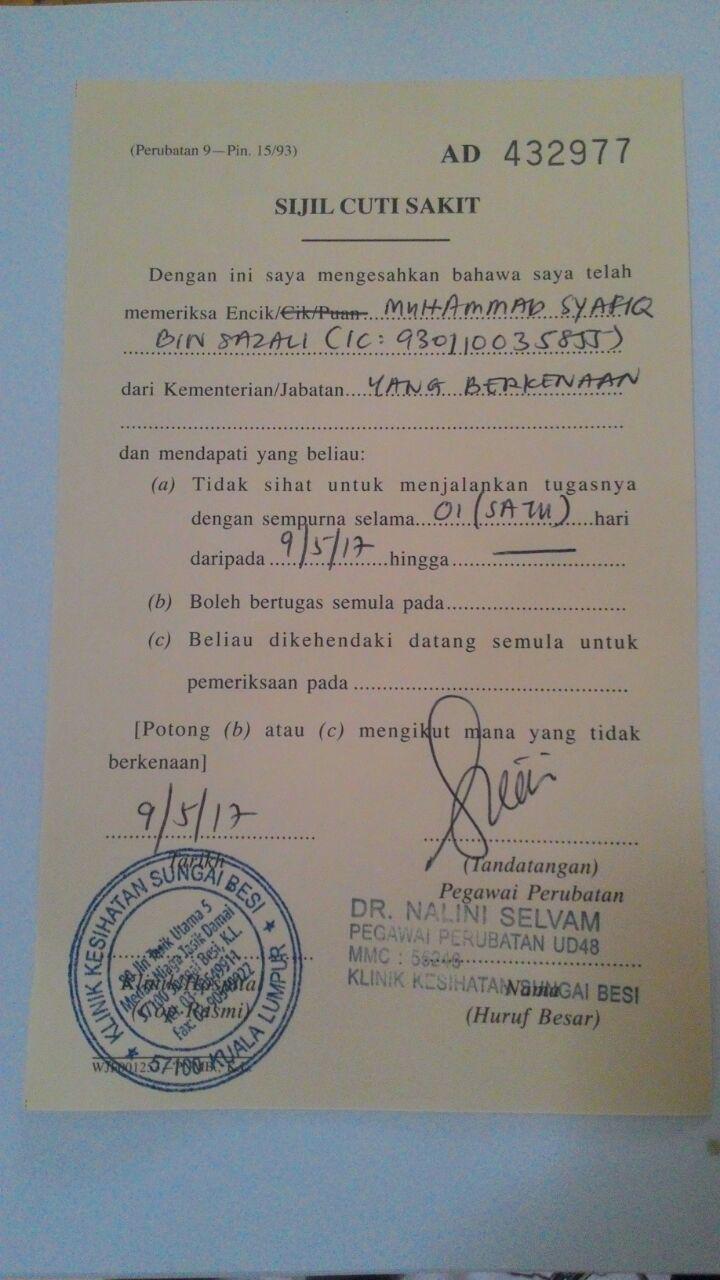 (Perubatan 9—Pin. 15/93)
AD 432977
SIJIL CUTI SAKIT
Dengan ini saya mengesahkan bahawa saya telah
memeriksa Encik/Cik/Puan MUHAMMAD SYAFIQ
BIN SAZALI (IC: 930110035855)
dari Kementerian/Jabatan YANG BERKENAAN
dan mendapati yang beliau:
(a) Tidak sihat untuk menjalankan tugasnya
dengan sempurna selama 01 (SATU) hari
daripada 9/5/17 hingga —
(b) Boleh bertugas semula pada
(c) Beliau dikehendaki datang semula untuk
pemeriksaan pada
[Potong (b) atau (c) mengikut mana yang tidak
berkenaan]
9/5/17
Tarikh
(Tandatangan)
Pegawai Perubatan
DR. NALINI SELVAM
PEGAWAI PERUBATAN UD48
MMC :
KLINIK KESIHATAN SUNGAI BESI
Nama
(Huruf Besar)
KLINIK KESIHATAN SUNGAI BESI
Jln Tasik Utama 5
Medan Niaga Tasik Damai
57100 Sungai Besi, K.L.
Tel: 03
Fax: 03
57100 KUALA LUMPUR
Klinik/Hospital
(Cop Rasmi)